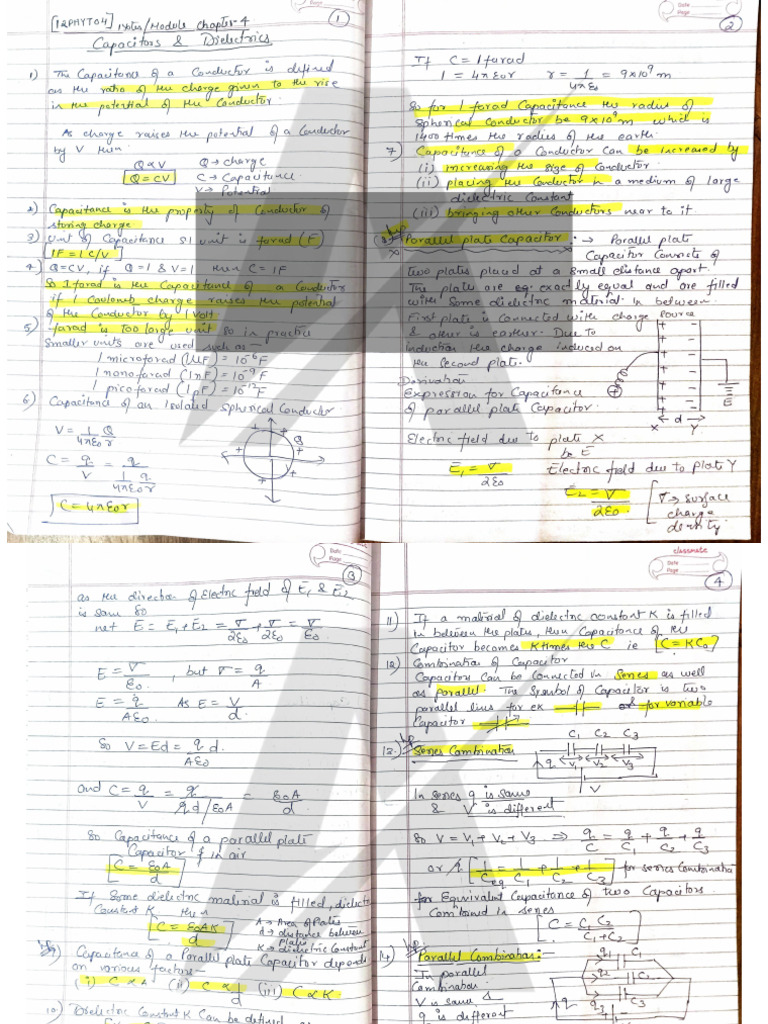 Date
Page
1
[12PHYT04] Notes/Module Chapter-4
Capacitors & Dielectrics
1) The Capacitance of a Conductor is defined
as the ratio of the charge given to the rise
in the potential of the Conductor.
As charge raises the potential of a Conductor
by V then
Q ∝ V Q → charge
Q = CV C → Capacitance
V → Potential
2) Capacitance is the property of Conductor of
storing charge
3) Unit of Capacitance SI unit is farad (F)
1F = 1 C/V
4) Q=CV, if Q=1 & V=1 then C = 1F
So 1 farad is the Capacitance of a Conductor
if 1 Coulomb charge raises the potential
of the Conductor by 1 Volt
5) farad is Too large unit so in practice
Smaller units are used such as -
1 microfarad (1μF) = 10⁻⁶F
1 nanofarad (1nF) = 10⁻⁹F
1 picofarad (1pF) = 10⁻¹²F
6) Capacitance of an Isolated spherical Conductor
V = 1/4πε₀ Q/r
C = q/V = q/(1/4πε₀ q/r)
Q
C = 4πε₀r
Date
Page
2
If C = 1 farad
1 = 4πε₀r r = 1/4πε₀ = 9×10⁹ m
So for 1 farad Capacitance the radius of
Spherical Conductor be 9×10⁹m which is
1400 times the radius of the earth.
7) Capacitance of a Conductor can be increased by
(i) increasing the size of Conductor
(ii) placing the Conductor in a medium of large
dielectric Constant
(iii) bringing other Conductors near to it.
Imp
8) Parallel plate Capacitor :→ Parallel plate
Capacitor Consists of
two plates placed at a small distance apart.
The plates are eq. exactly equal and are filled
with some dielectric material in between.
First plate is Connected with charge source
& other is earther. Due to
induction the charge induced on
the second plate.
Derivation
Expression for Capacitance
of parallel plate Capacitor.
X ← d → Y
E
Electric field due to plate X
be E
E₁ = σ/2ε₀ Electric field due to plate Y
E₂ = σ/2ε₀. [σ → surface
charge
density.
Date
Page
3
as the direction of Electric field of E₁ & E₂
is same so
net E = E₁+E₂ = σ/2ε₀ + σ/2ε₀ = σ/ε₀
E = σ/ε₀, but σ = q/A
E = q/Aε₀ As E = V/d.
So V = Ed = q/Aε₀ d.
and C = q/V = q/(qd/ε₀A) = ε₀A/d
So Capacitance of a parallel plate
Capacitor f in air
[C = ε₀A/d]
If Some dielectric material is filled, dielectric
Constant K then
[C = ε₀AK/d]
A → Area of Plates
d → distance between
plates
K → dielectric Constant
Imp
9) Capacitance of a Parallel plate Capacitor depends
on various factors -
(i) C ∝ A (ii) C ∝ 1/d (iii) C ∝ K
10) Dielectric Constant K Can be defined as
classmate
Date
Page
4
11) If a material of dielectric constant K is filled
in between the plates, then Capacitance of the
Capacitor becomes K times the C ie [C = KC₀]
12) Combination of Capacitor
Capacitors Can be Connected in Series as well
as Parallel. The Symbol of Capacitor is two
parallel lines for ex or for variable
Capacitor
Imp
12.) Series Combination
C₁ C₂ C₃
q V₁ V₂ V₃
V
In series q is same
& V is different
So V = V₁+V₂+V₃ ⇒ q/C = q/C₁ + q/C₂ + q/C₃
or [1/Ceq = 1/C₁ + 1/C₂ + 1/C₃] for series Combination
for Equivalent Capacitance of two Capacitors
Combined in series
[C = C₁C₂/C₁+C₂]
Imp
14) Parallel Combination:-
In parallel
Combination
V is same &
q is different
q q₁ C₁
q₂ C₂
q₃ C₃